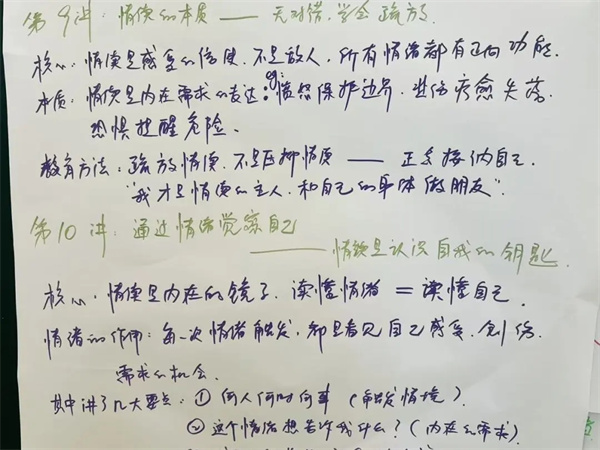 第9讲：情绪的本质——无对错，学会疏放
核心：情绪是感受的信使，不是敌人，所有情绪都有正向功能．
本质：情绪是内在需求的表达：eg：愤怒保护边界．悲伤疗愈失落
恐惧提醒危险．
教育方法：疏放情绪，不是压抑情绪——正去接纳自己．
"我才是情绪的主人，和自己的身体做朋友"．
第10讲：通过情绪觉察自己
——情绪是认识自我的钥匙．
核心：情绪是内在的镜子．读懂情绪＝读懂自己．
情绪的作用：每一次情绪触发，都是看见自己感受．创伤
需求的机会．
其中讲了几大要点：① 何人何时何事（触发情境）．
② 这个情绪想告诉我什么？（内在的需求）